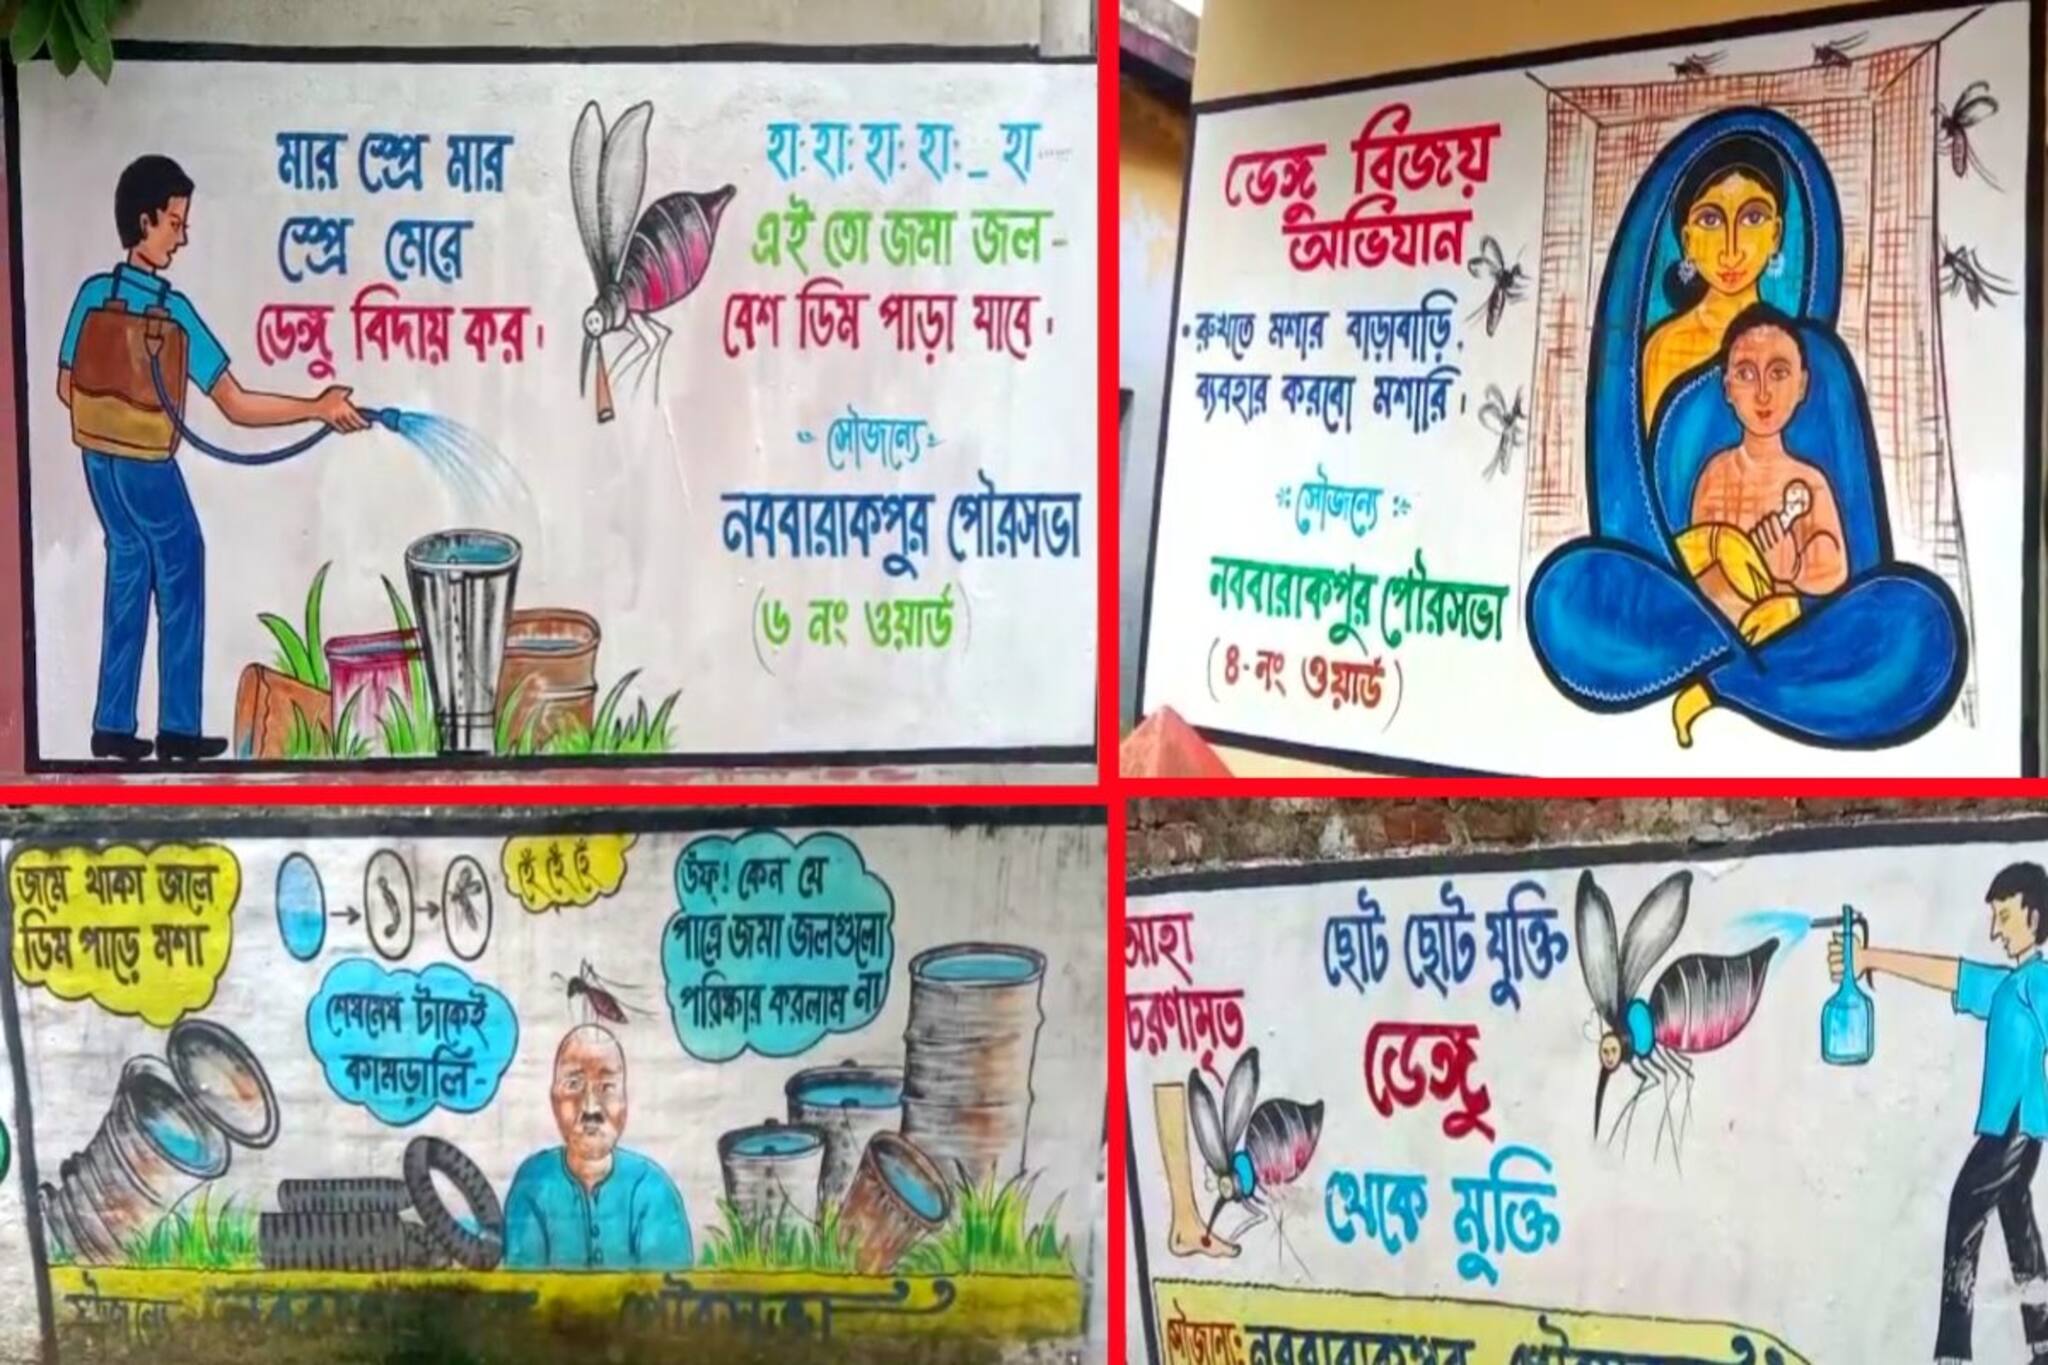 মার স্প্রে মার
স্প্রে মেরে
ডেঙ্গু বিদায় কর।
হা: হা: হা: হা: _ হা .....
এই তো জমা জল -
বেশ ডিম পাড়া যাবে।
সৌজন্যে
নববারাকপুর পৌরসভা
(৬ নং ওয়ার্ড)
ডেঙ্গু বিজয়
অভিযান
• রুখতে মশার বাড়াবাড়ি,
ব্যবহার করবো মশারি।
সৌজন্যে
নববারাকপুর পৌরসভা
(৪-নং ওয়ার্ড)
জমে থাকা জলে
ডিম পাড়ে মশা
হেঁ হেঁ হেঁ
শেষমেষ টাকেই
কামড়ালি-
উঁফ্! কেন যে
পাত্রে জমা জলগুলো
পরিষ্কার করলাম না
সৌজন্যে
পৌরসভা
আহা
চরণামৃত
ছোট ছোট যুক্তি
ডেঙ্গু
থেকে মুক্তি
সৌজন্যে: নববারাকপুর পৌরসভা